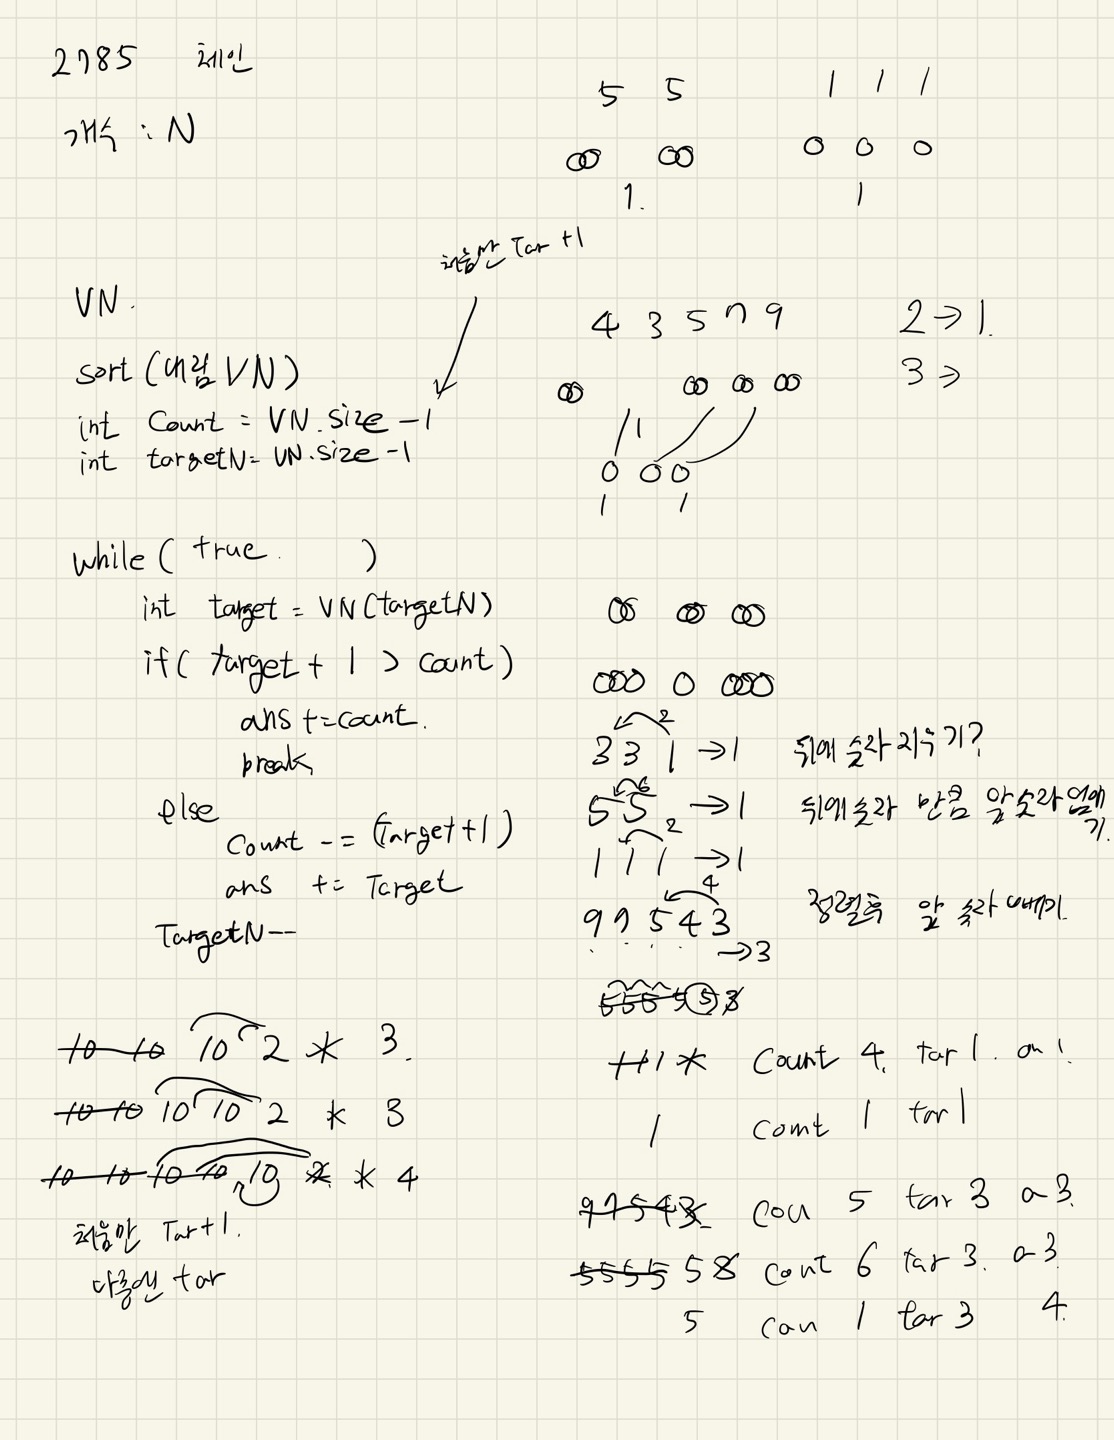 2785 체인
개수 : N
5 5
1 1 1
00 00
0 0 0
1.
1
처음만 Tar +1
VN.
sort (내림 VN)
int Count = VN.size -1
int targetN = VN.size -1
4 3 5 7 9
2 → 1.
3 →
00 00 00 00
1
0 0 0
1 1
while ( true. )
int target = VN(targetN)
if( target + 1 > count)
ans += count.
break
else
Count -= (Target+1)
ans += Target
TargetN--
00 00 00
000 0 000
2
3 3 1 → 1 뒤에 숫자 지우기?
6
5 5 → 1 뒤에 숫자 만큼 앞 숫자 없애기.
2
1 1 1 → 1
4
9 7 5 4 3 정렬후 앞 숫자 빼기.
→ 3
5 5 5 5 5 3
10 10 10 2 * 3.
10 10 10 10 2 * 3
10 10 10 10 10 2 * 4
처음만 Tar+1.
다음엔 tar
Count 4. tar 1. an 1.
1 Comt 1 tar 1
9 7 5 4 3 Cou 5 tar 3 a 3.
5 5 5 5 5 3 Cont 6 tar 3. a 3.
5 Con 1 tar 3 4.